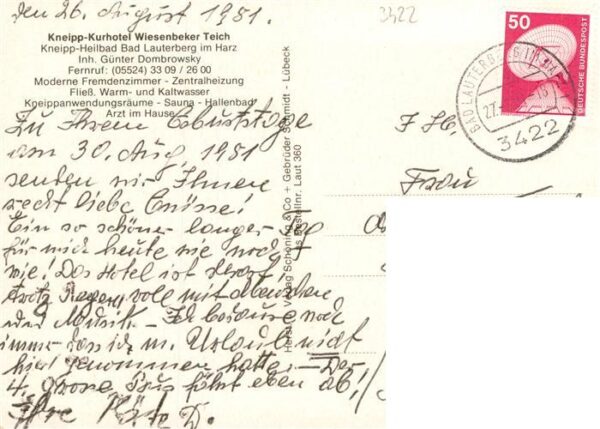 den 26. August 1981.
3422
Kneipp-Kurhotel Wiesenbeker Teich
Kneipp-Heilbad Bad Lauterberg im Harz
Inh. Günter Dombrowsky
Fernruf: (05524) 33 09 / 26 00
Moderne Fremdenzimmer - Zentralheizung
Fließ. Warm- und Kaltwasser
Kneippanwendungsräume - Sauna - Hallenbad
Arzt im Hause
Zu Ihrem Geburtstage
am 30. Aug. 1981
senden wir Ihnen
recht liebe Grüsse!
Ein so schöner langer Tag
für mich heute wie noch
nie! Das Hotel ist derzeit
trotz Regen voll mit
und Musik. - Ich bedaure noch
immer das ich m. Urlaub nicht
hier genommen hatte. - Der
4. grosse Bus fährt eben ab!
Ihre Käte D.
Schöning & Co + Gebrüder Schmidt - Lübeck
Bestellnr. Laut 360
50
DEUTSCHE BUNDESPOST
BAD LAUTERBERG IM HARZ
27.
3422
F. Hs.
Frau